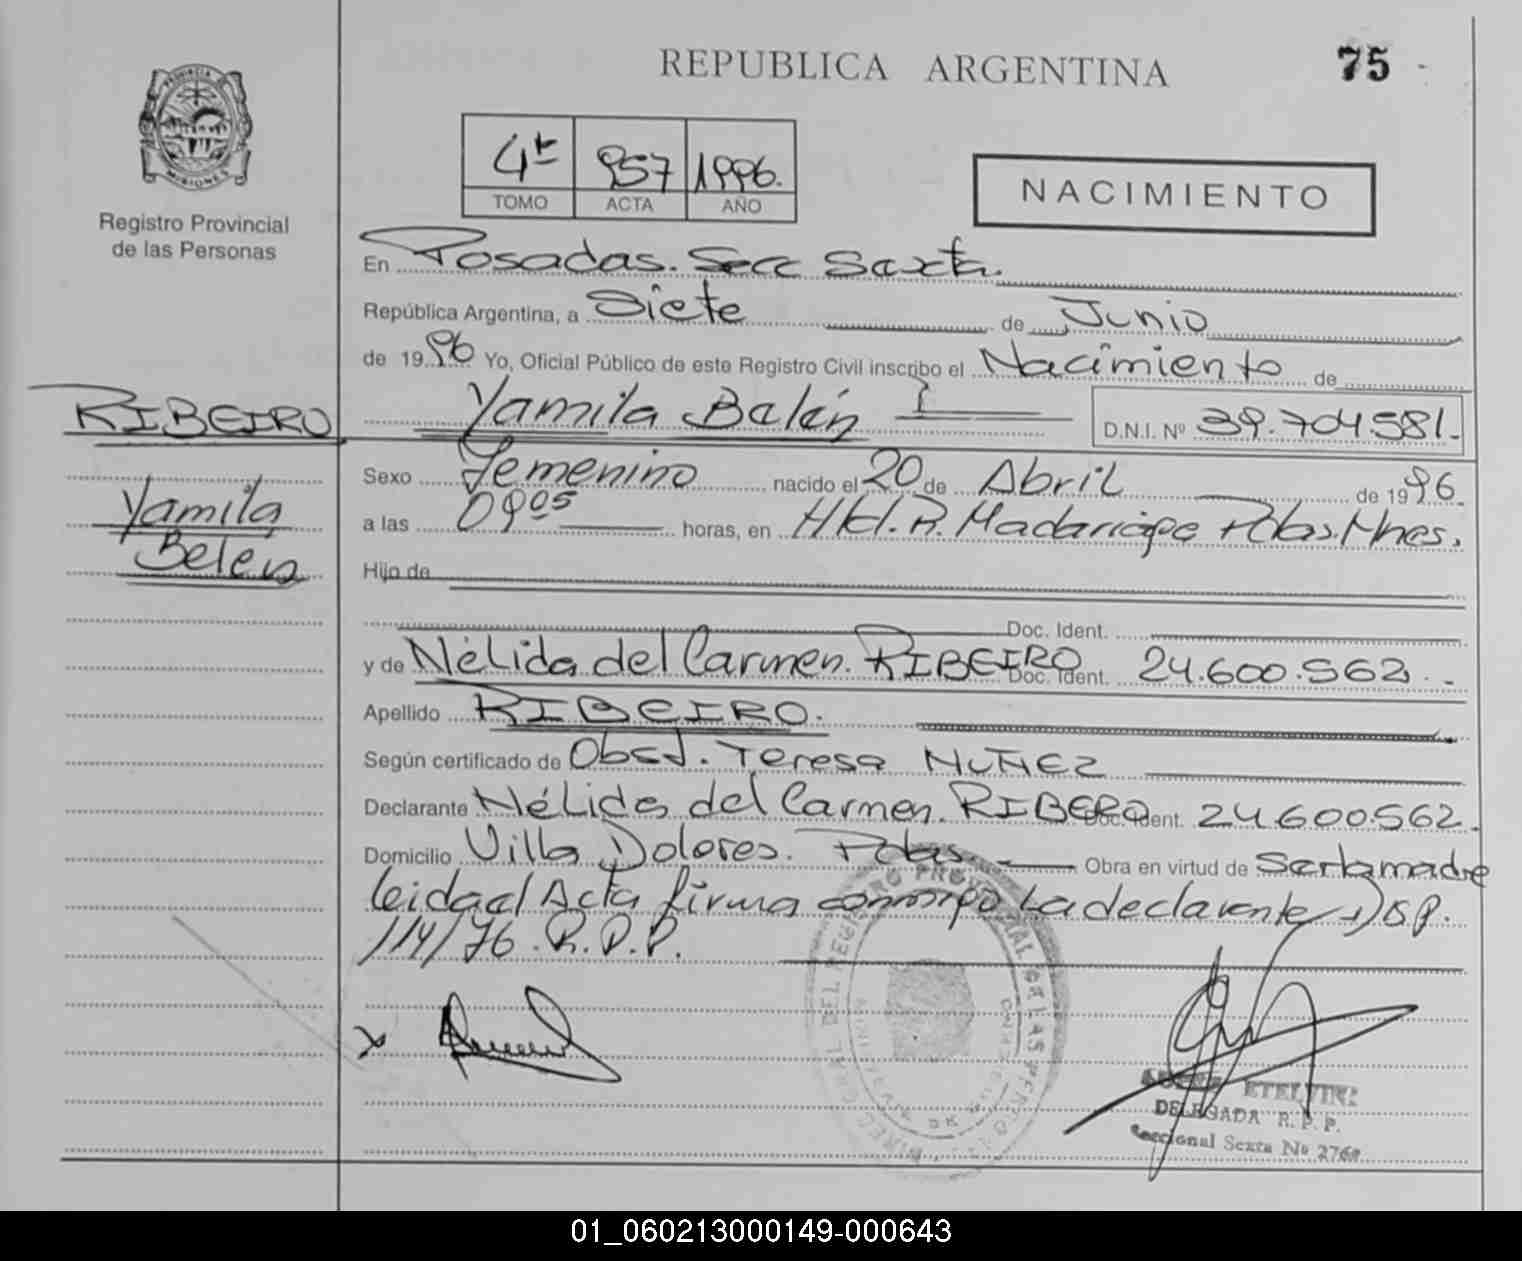 REPUBLICA ARGENTINA
75
PROVINCIA
MISIONES
Registro Provincial
de las Personas
4º 957 1996.
TOMO ACTA AÑO
NACIMIENTO
En Posadas. Secc Sexta.
República Argentina, a Siete de Junio
de 1996 Yo, Oficial Público de este Registro Civil inscribo el Nacimiento de
RIBEIRO
Yamila Belén
D.N.I. Nº 39.704.581.
Sexo Femenino nacido el 20 de Abril de 1996.
Yamila
Belen
a las 0905 horas, en Htal. R. Madariaga Pdas. Mnes.
Hijo de
Doc. Ident.
y de Nélida del Carmen. RIBEIRO Doc. Ident. 24.600.562.
Apellido RIBEIRO.
Según certificado de Obst. Teresa NUÑEZ
Declarante Nélida del Carmen. RIBERO Doc. Ident. 24.600.562.
Domicilio Villa Dolores. Pdas. Obra en virtud de Ser la madre
leida el Acta firma conmigo La declarante
114/76. R.P.P.
ETELVINA
DELEGADA R. P. P.
Seccional Sexta Nº
01_060213000149-000643